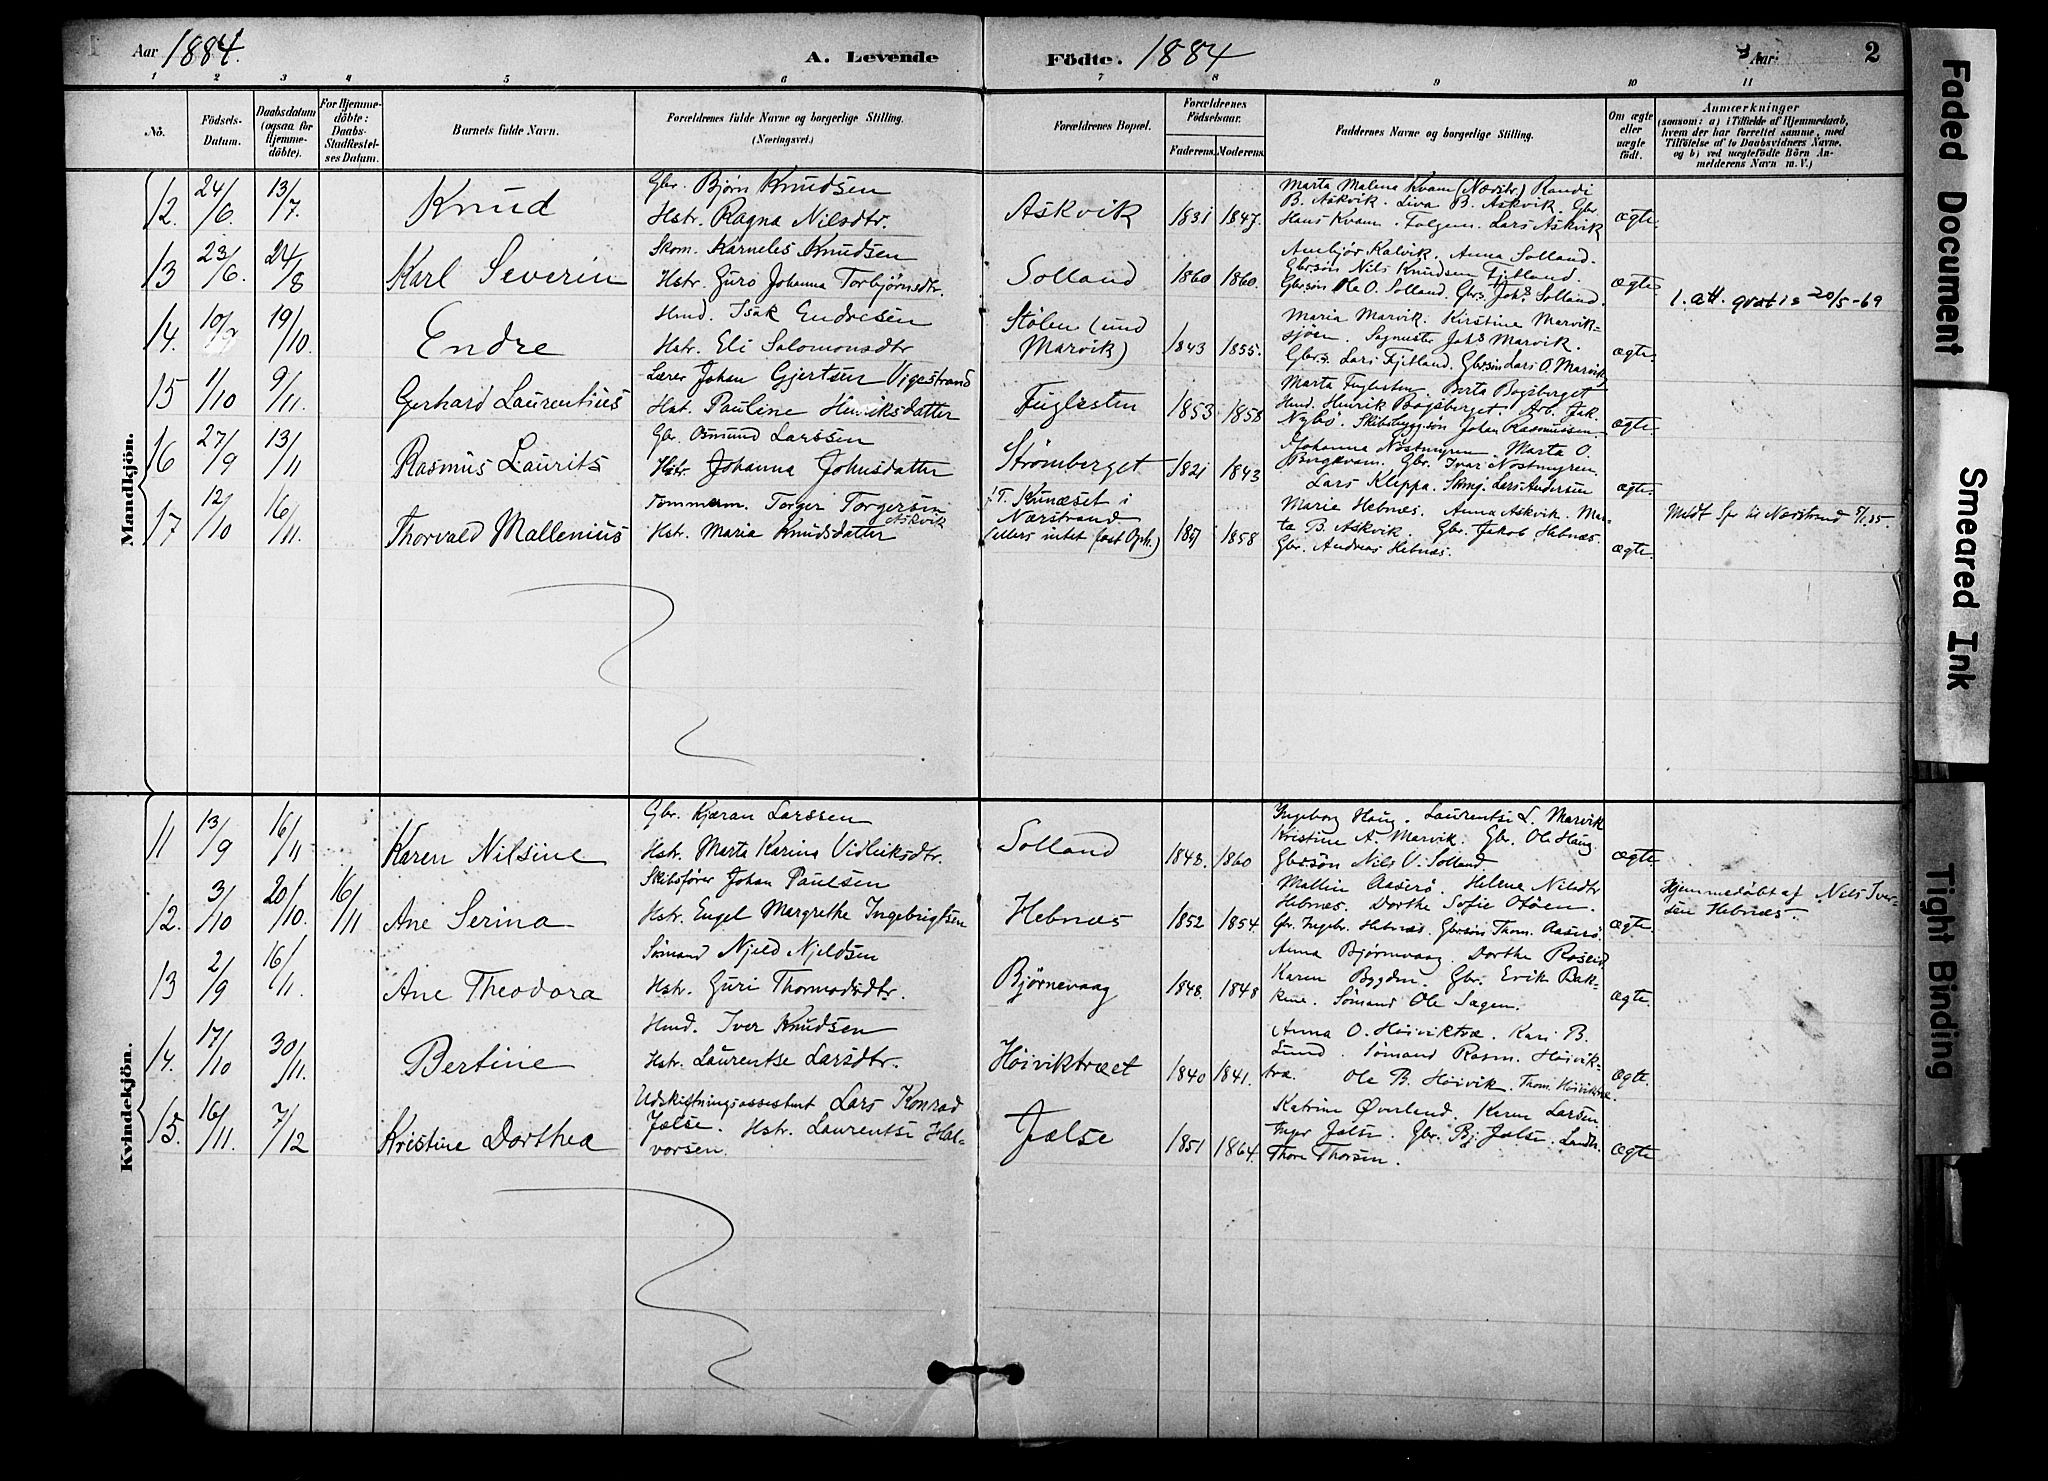 Aar 1884. A. Levende Födte. 1884 Aar: 2
1 2 3 4 5 6 7 8 9 10 11
No. Födsels-Datum. Daabsdatum (ogsaa for Hjemme-döbte). For Hjemme-döbte: Daabs-Stadfæstel-ses Datum. Barnets fulde Navn. Forældrenes fulde Navne og borgerlige Stilling. (Næringsvei.) Forældrenes Bopæl. Forældrenes Födselsaar. Faderens. Moderens. Faddernes Navne og borgerlige Stilling. Om ægte eller uægte födt. Anmærkninger
(saasom: a) i Tilfælde af Hjemmedaab, hvem der har forrettet samme, med Tilföielse af to Daabsvidners Navne, og b) ved uægtefödte Börn An-melderens Navn m. V.)
Mandkjön.
12. 24/6. 13/7. Knud
Gbr. Bjørn Knudsen
Hstr. Ragna Nilsdtr.
Askvik 1831 1847.
Marta Malena Kvam (Nærstr.) Randi
B. Askvik. Liva B. Askvik. Gbr.
Hans Kvam. Lars Askvik
ægte.
13 23/6. 24/8 Karl Severin
Skom. Karneles Knudsen
Hstr. Guro Johanna Torbjørnsdtr.
Solland 1860 1860.
Anbjør Kalvik. Anna Solland.
Gbrsøn Nils Knudsen Fjetland.
Gbrsøn Ole O. Solland. Gbrs. Johs Solland.
ægte.
1. att. gratis 20/5-69
14. 19/10. Endre
Hmd. Isak Endresen
Hstr. Eli Salomonsdtr
Stølen (und
Marvik) 1843 1855.
Maria Marvik. Kirstine Marvik-
sjøen. Johs Marvik.
Gbrs. Lars Fjetland. Gbrsøn Lars O. Marvik
ægte.
15 1/10 9/11. Gerhard Laurentius
Lærer Johan Gjertsen Vigestrand
Hst. Pauline Henriksdatter
Fuglesten 1853 1858
Marta Fuglesten. Berta Bogsberget
Hmd. Henrik Bogsberget. Arb. Jak.
Nybø. Skibsbyggsøn Johan Rasmussen
ægte.
16 27/9 13/11 Rasmus Laurits
Gbr. Osmund Larssen
Hstr. Johanna Johnsdatter
Strømberget 1821 1843
Johanna Nostmyren. Marta O.
Borgkvam. Gbr. Ivar Nostmyren.
Lars Klippa. Lars Andersen
ægte.
17 12/10 16/11. Thorvald Mallenius
Tømmerm. Torger Torgersen
Askvik
Hstr. Maria Knudsdatter
Nærstrand
(ellers intet fast Oph.) 1858
Marie Hebnæs. Anna Askvik. Mar-
ta B. Askvik. Gbr. Jakob Hebnæs.
Gbr. Andreas Hebnæs.
ægte.
Meldt Spr til Nærstrand
Kvindekjön.
11 13/9 16/11 Karen Nilsine
Gbr. Kjæran Larssen
Hstr. Marta Karina Vidliksdtr.
Solland 1848. 1860
Ingeborg Haug. Laurentse L. Marvik
Kristine A. Marvik. Gbr. Ole Haug.
Gbrsøn Nils V. Solland.
ægte
12. 3/10 20/10. 16/11 Ane Serina
Skibsfører Johan Paulsen
Hstr. Engel Margrethe Ingebrigtsen
Hebnæs 1852 1854.
Mallin Aaserø. Helene Nilsdtr
Hebnæs. Dorthe Sofie Otøen.
Gbr. Ingbr. Hebnæs. Gbrsøn Thom. Aaserø.
ægte.
Hjemmedøbt af Nils Iver-
sen Hebnæs.
13 2/9 16/11. Ane Theodora
Sømand Njeld Njeldsen
Hstr. Guri Thormodsdtr.
Bjørnevaag 1848. 1848
Anna Bjørnevaag. Dorthe Røseid
Karen Bygden. Gbr. Erik Bak-
kene. Sømand Ole Sagen.
ægte.
14. 17/10 30/11. Bertine
Hmd. Iver Knudsen
Hstr. Laurentse Larsdtr.
Høiviktræet 1840 1841.
Anna O. Høiviktræ. Kari B.
Lund. Sømand Rasm. Høivik-
træ. Ole B. Høivik. Thom. Høiviktræ.
ægte.
15. 16/11. 7/12 Kristine Dorthea
Udskiftningsassestent Lars Konrad
Jælse. Hstr. Laurentse Hal-
vorsen.
Jælse 1851 1864.
Katrine Øverland. Karen Larsen.
Inger Jælse. Gbr. Bj. Jælse. Landh.
Thore Thorsen.
ægte
Faded Document
Smeared Ink
Tight Binding